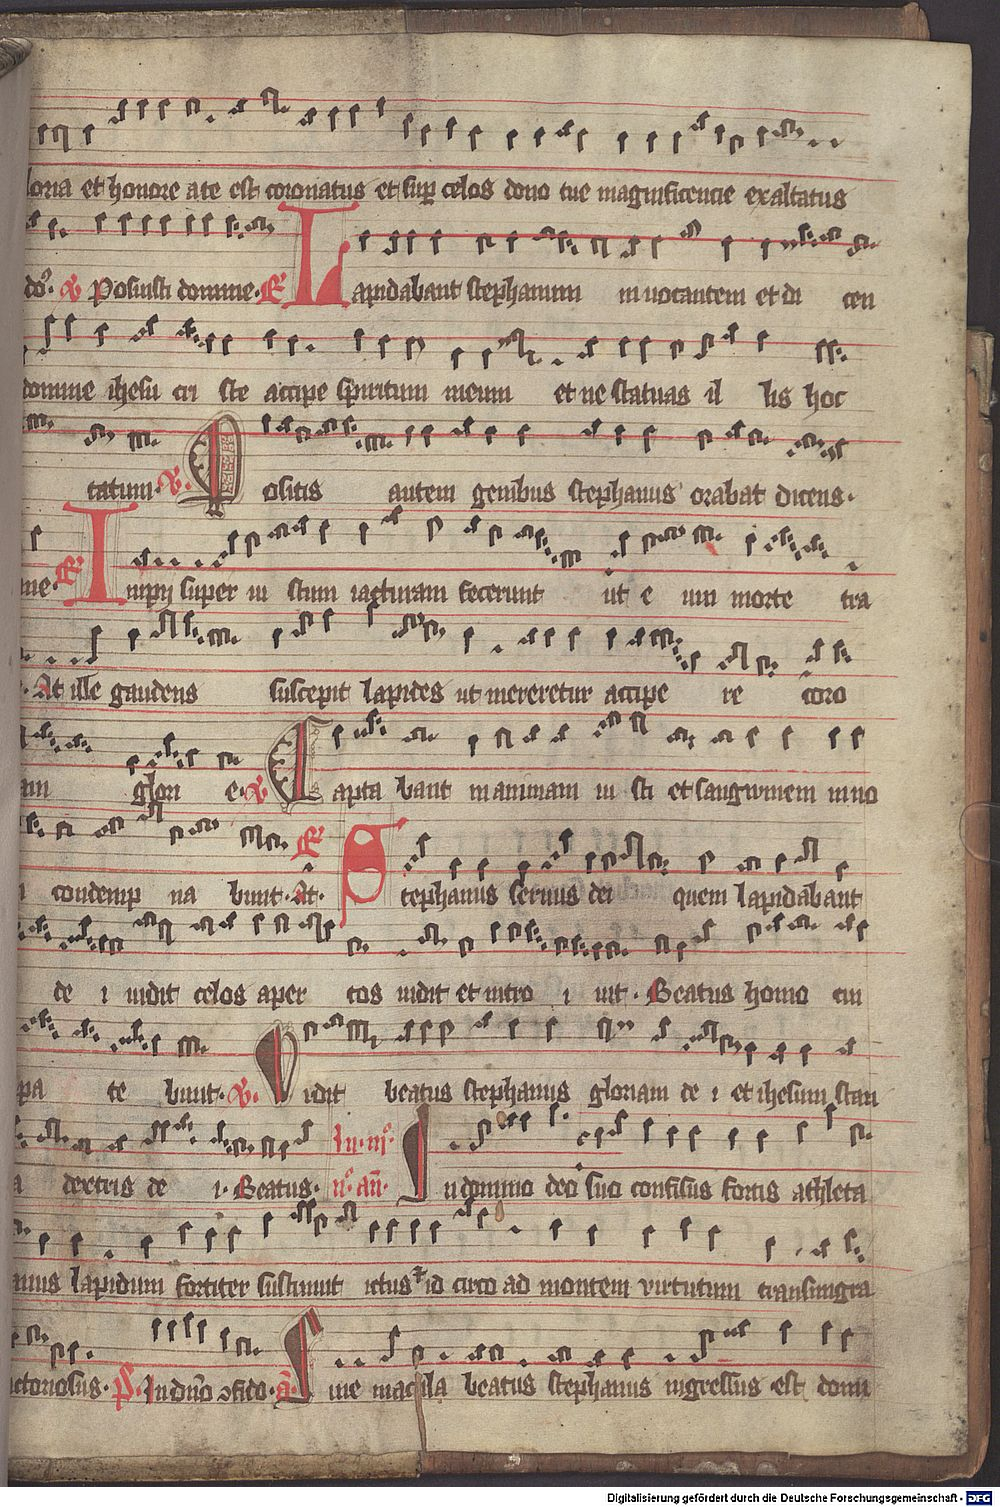 loria et honore a te est coronatus et sup celos dono tue magnificencie exaltatus
do. V Posuisti domine. R Lapidabant stephanum inuocantem et di cen
domine ihesu cri ste accipe spiritum meum et ne statuas il lis hoc
tatum. V. Positis autem genibus stephanus orabat dicens.
ne. R Impij super iu stum iacturam fecerunt ut e um morte tra
At ille gaudens suscepit lapides ut mereretur accipe re coro
am glori e. V Captabant in animam iu sti et sangwinem inno
condemp na bunt. At. R Stephanus seruus dei quem lapidabant
de i uidit celos aper tos uidit et intro i uit. Beatus homo cui
pa te bant. V. Vidit beatus stephanus gloriam de i et ihesum stan
a dextris de i. Beatus. In. ii. n. an. In domino deo suo confisus fortis athleta
lapidum fortiter sustinuit ictus id circo ad montem virtutum transmigra
ctoriosus. P. In dno ofido. a Sine macula beatus stephanus ingressus est domi
Digitalisierung gefördert durch die Deutsche Forschungsgemeinschaft - DFG